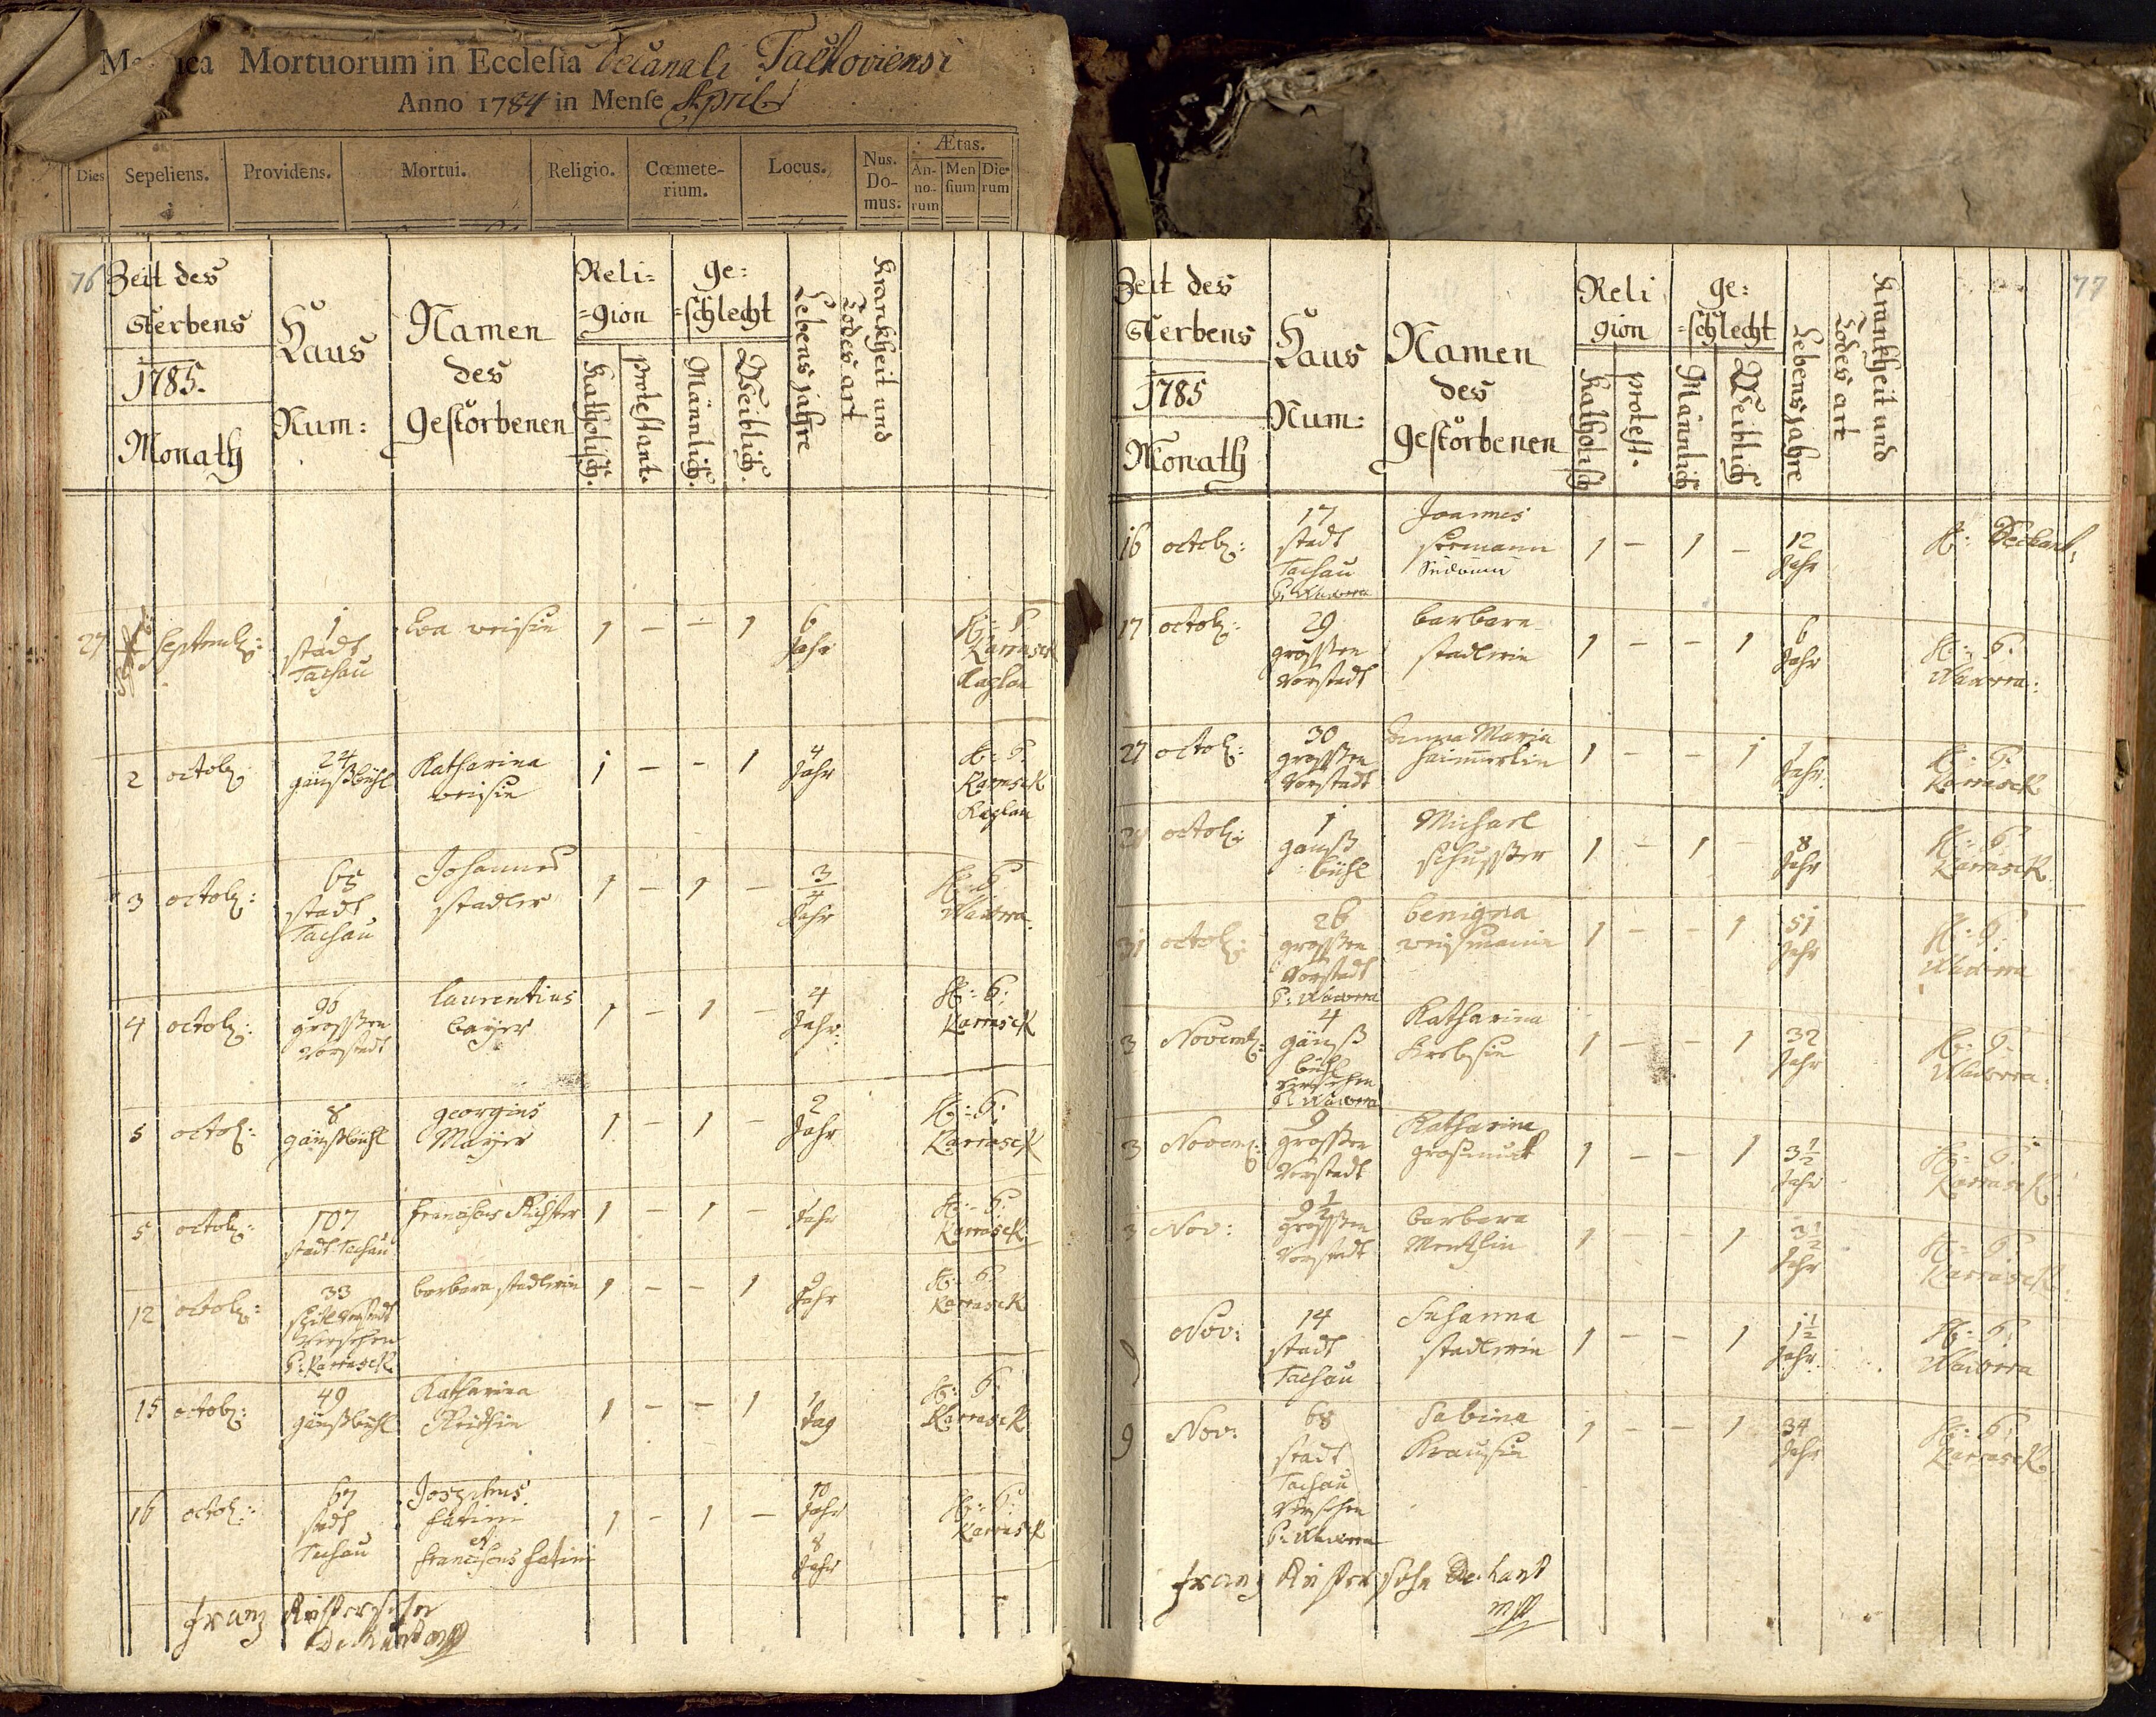 Mortuorum in Ecclesia Decanali Tachoviensi
Anno 1784 in Mense April
Dies Sepeliens. Providens. Mortui. Religio. Cœmeterium. Locus. Nus. Domus. Ætas. Annorum Mensium Dierum
76
Zeit des Sterbens 1785. Monath
Haus Num:
Namen des gestörbenen
Reli= =gion Katholisch. protestant.
ge: =schlecht Männlich. Weiblich.
Lebens jahre
Krankheit und Todes art
27 Septemb: 1 stadt Tachau Eva weisin 1 – – 1 6 Jahr H: P: Karrasek Kaplan
2 octob: 24 gänßbühl Katharina weisin 1 – – 1 4 Jahr H: P: Karrasek Kaplan
3 octob: 65 stadt Tachau Johannes stadler 1 – 1 – 3/4 Jahr H: P: Wawora
4 octob: 96 grossen vorstadt laurentius bayer 1 – 1 – 4 Jahr H: P: Karrasek
5 octob: 8 gänßbühl georgius Mayer 1 – 1 – 2 Jahr H: P: Karrasek
5 octob: 107 stadt Tachau franciscus Richter 1 – 1 – 1 Jahr H: P: Karrasek
12 octob: 33 vorstadt versehen P: Karrasek barbara stadlerin 1 – – 1 9 Jahr H: P: Karrasek
15 octob: 49 gänßbühl Katharina 1 – – 1 1 tag H: P: Karrasek
16 octob: 67 stadt Tachau Josephus fatini et franciscus fatini 1 – 1 – 10 Jahr 8 Jahr H: P: Karrasek
Franz
Dechant mpp
77
Zeit des Sterbens 1785 Monath
Haus Num:
Namen des gestörbenen
Religion Katholisch protest.
ge: =schlecht Männlich Weiblich
Lebens jahre
Krankheit und Todes art
16 octob: 17 stadt Tachau P: Wawora Joannes 1 – 1 – 12 Jahr H: Dechant:
17 octob: 29 grossen Vorstadt barbara stadlerin 1 – – 1 6 Jahr H: P: Wawora:
27 octob: 30 grossen Vorstadt Anna Maria 1 – – 1 1 Jahr H: P: Karrasek
octob: 1 gänß bühl Michael schusster 1 – 1 – 8 Jahr H: P: Karrasek
31 octob: 26 grossen Vorstadt P: Wawora benigna weismanin 1 – – 1 51 Jahr H: P: Wawora
3 Novemb: 4 gänß bühl versehen P Wawora Katharina Krebsin 1 – – 1 32 Jahr H: P: Wawora:
3 Novem: 9 grossen Vorstadt Katharina 1 – – 1 3 1/2 Jahr H: P: Karrasek
3 Nov: grossen Vorstadt barbara 1 – – 1 3 1/2 Jahr H: P: Karrasek
9 Nov: 14 stadt Tachau Susanna stadlerin 1 – – 1 1 1/2 Jahr H: P: Wawora
9 Nov: 68 stadt Tachau Versehen P: Wawora Sabina Krausin 1 – – 1 34 Jahr H: P: Karrasek
Franz Dechant
mpp